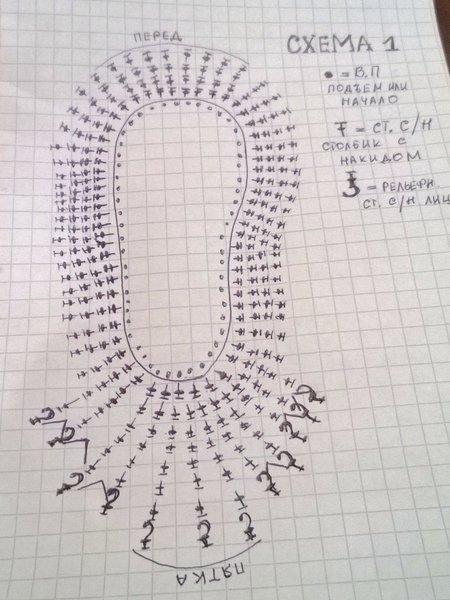 ПЕРЕД
СХЕМА 1
• = В.П
ПОДЪЕМ ИЛИ
НАЧАЛО
= СТ. С/Н
СТОЛБИК С
НАКИДОМ
= РЕЛЬЕФН.
СТ. С/Н ЛИЦ
ПЯТКА